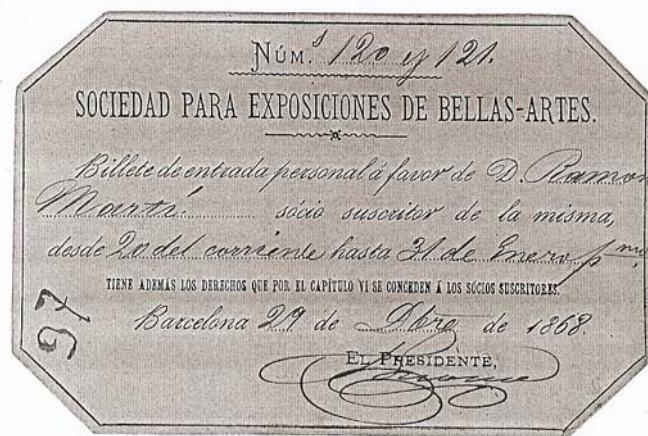 NÚM.s 120 y 121.
SOCIEDAD PARA EXPOSICIONES DE BELLAS-ARTES.
Billete de entrada personal á favor de D. Ramon
Martí sócio suscritor de la misma,
desde 20 del corriente hasta 31 de Enero pmo
TIENE ADEMÁS LOS DERECHOS QUE POR EL CAPÍTULO VI SE CONCEDEN Á LOS SÓCIOS SUSCRITORES.
97
Barcelona 29 de Dbre de 1868.
EL PRESIDENTE,